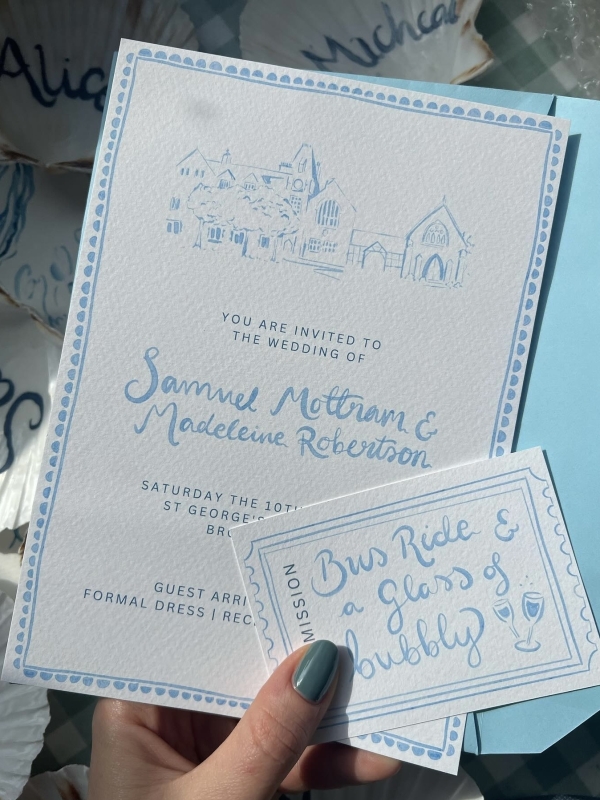 Alic
Michea
YOU ARE INVITED TO
THE WEDDING OF
Samuel Mottram &
Madeleine Robertson
SATURDAY THE 10TH
ST GEORGE'S
GUEST ARRI
FORMAL DRESS | REC
MISSION
Bus Ride &
a glass of
bubbly